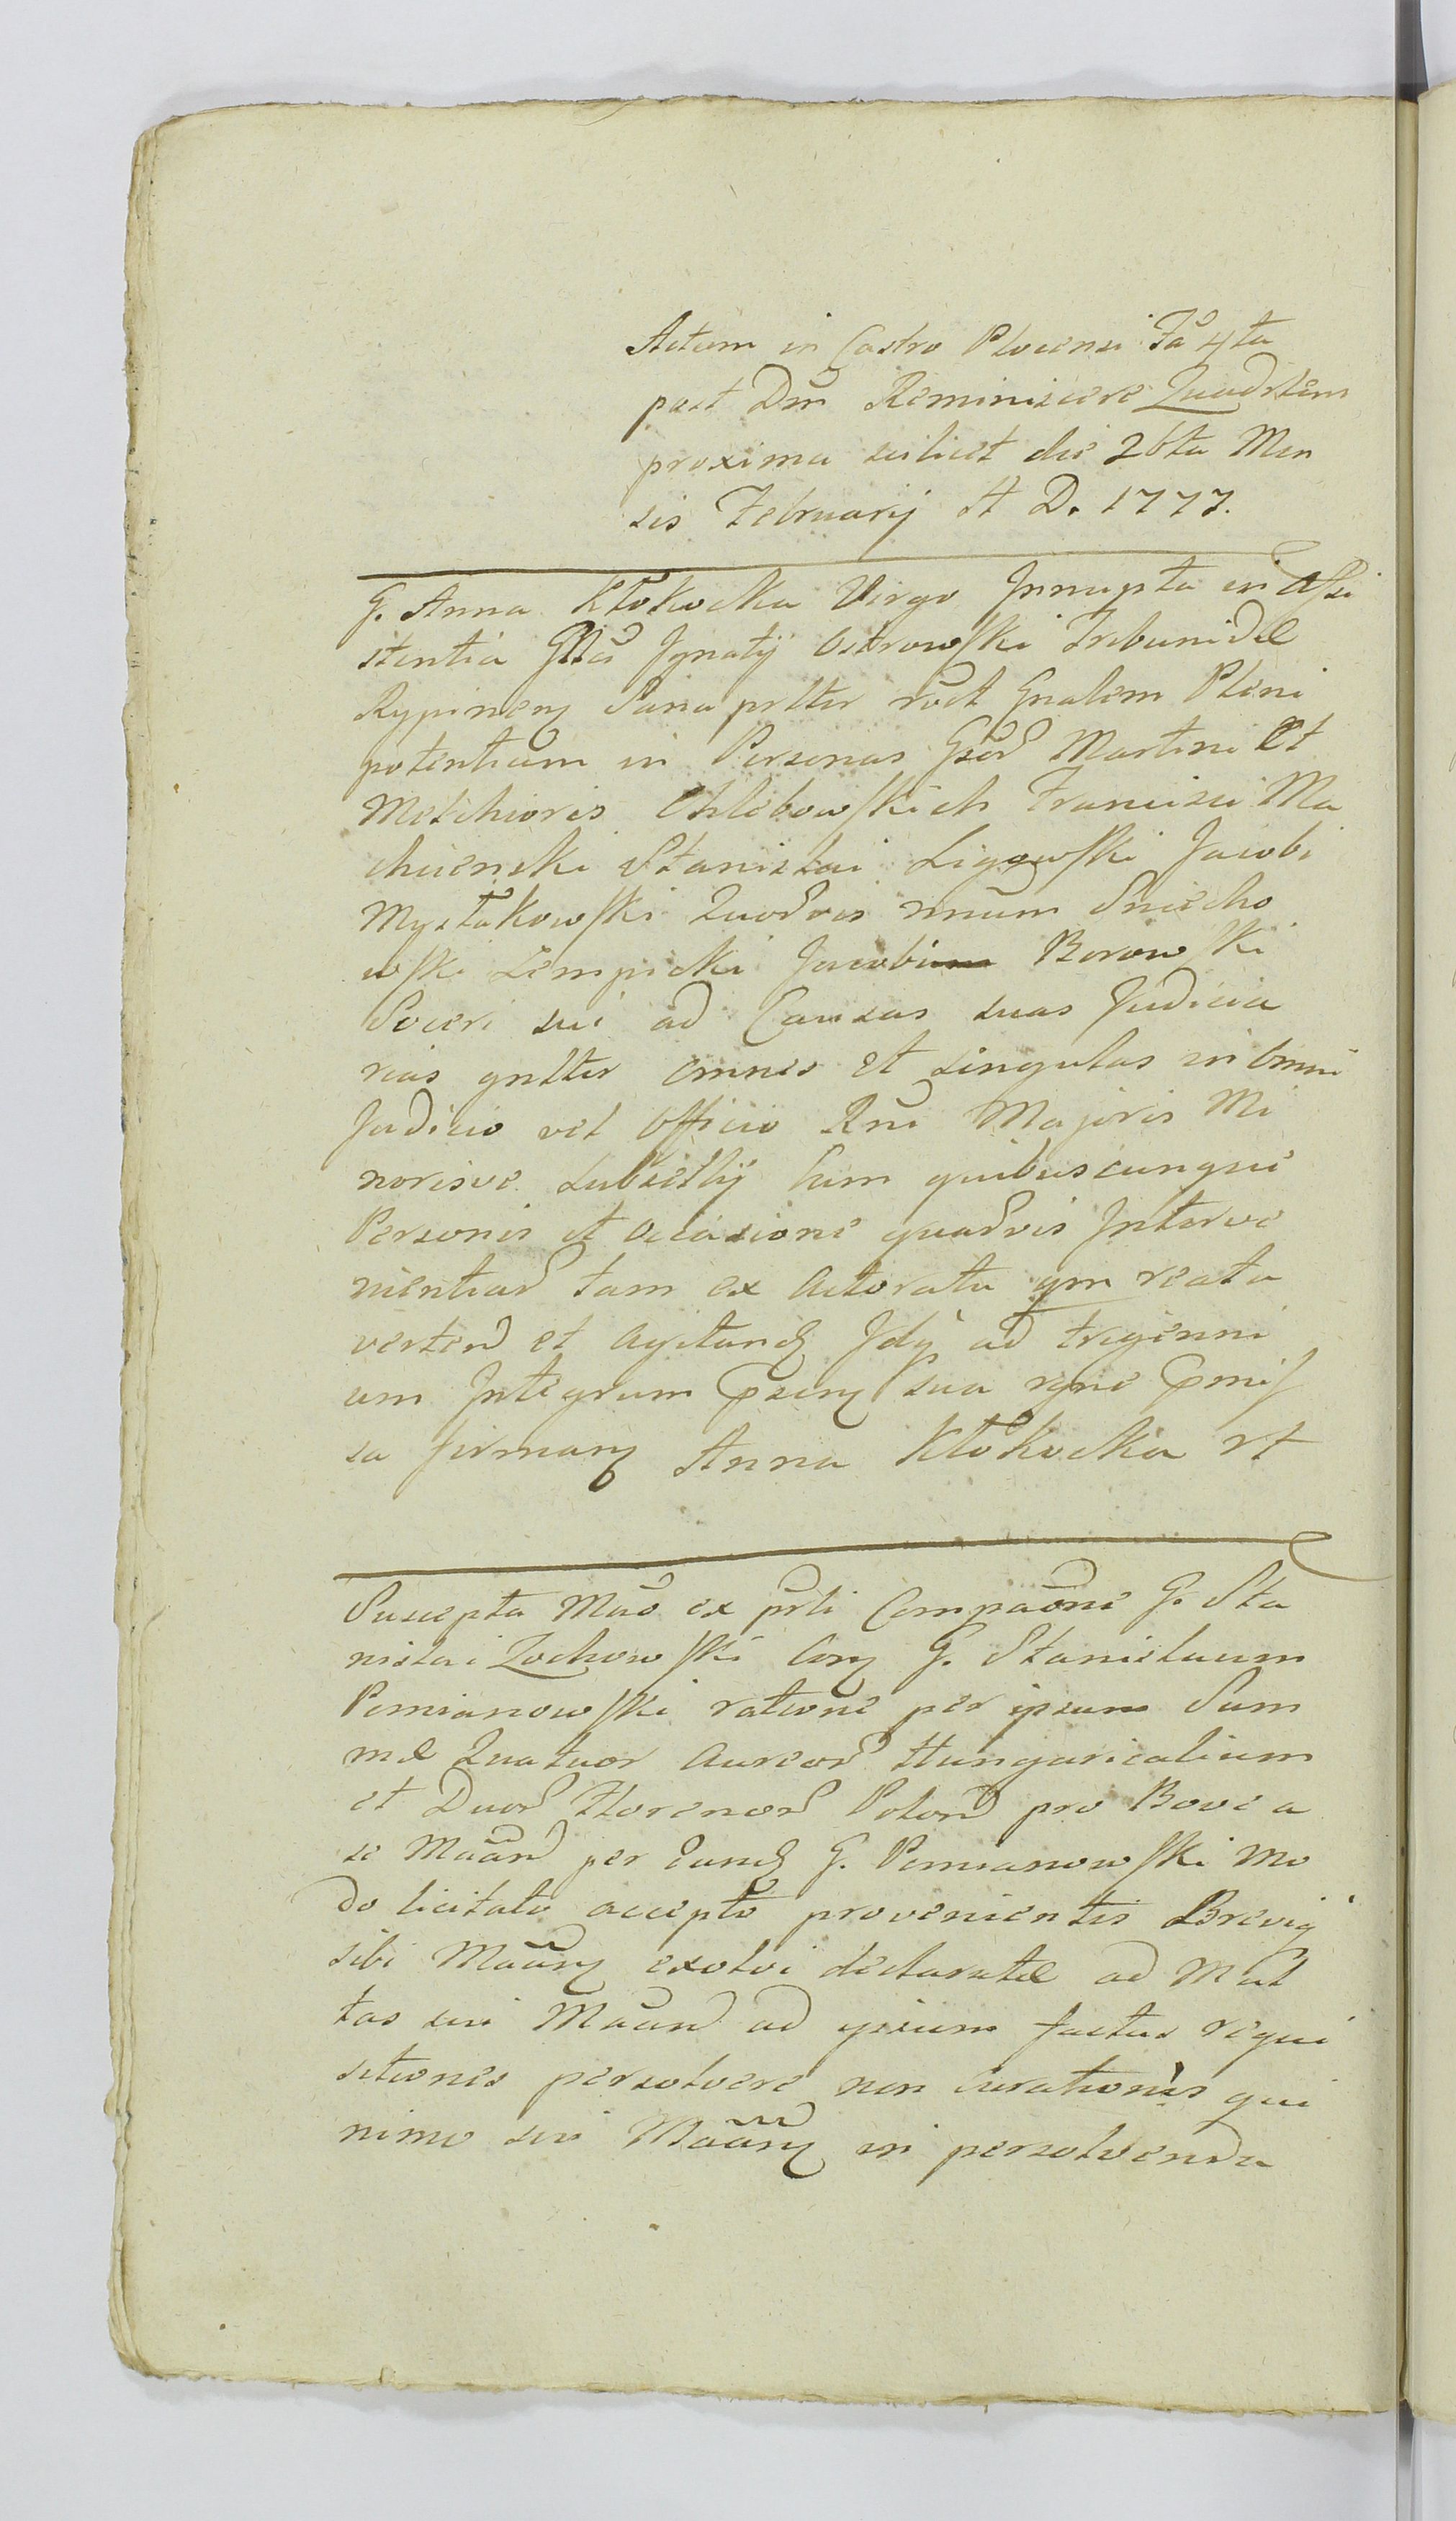 Actum in Castro Plocensi Fa 4ta
post Dm̃ Reminiscere Quadrlem
proxima scilicet die 26ta Men
sis Februarij A D. 1777.
G. Anna Kłokocka Virgo Innupta in Assi
stentia Gñi Ignatij Ostrowski Tribunidæ
Rypineng Sana prltr roct Gnalem Pleni
potentiam in Personas Gsor Martini Et
Melchioris Chlebowskich Francisci Ma
chcienski Stanislai Ligowski Jacobi
Mystkowski Quorvis unum Sniecho
wski Lempicki Jacobi Borowski
Soceri sui ad Causas suas Judicia
rias gnltr omnes et singulas in omni
Judicio vel Officio Rni Majoris Mi
norisve Subselly hum quibuscunque
Personis et occasione quarvis Interve
nientiar tam ex actoratu qm reatu
verten et agitand Idq ad trigenni
um Integrum pseng sua mne pmis
sa firmang Anna Kłokocka rt
Suscepta Mão ex prti Compaõne G. Sta
nislai Zochowski Cong G. Stanislaum
Pomianowski ratione per ipsum Sum
mæ Quatuor Aureor Hungaricalium
et Duor Florenor Polon pro Bove a
se Mãan per Eund G. Pomianowski mo
do licitato accepto provenientis Brevig
sibi Mãang exolvi declaratæ ad Mul
tas sui Mãan ad ipsum factas requi
sitiones persolvere non curationis qui
nimo sui Mãang in persolvenda